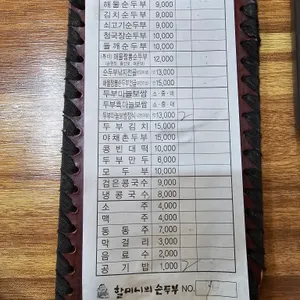 해물순두부 9,000
김치순두부 9,000
쇠고기순두부 9,000
청국장순두부 10,000
들깨순두부 10,000
해물짬뽕순두부 12,000
순두부낙지전골 13,000
해물짬뽕순두부전골 15,000
두부마늘보쌈 소·중·대
두부흑마늘보쌈 소·중·대
두부마늘보쌈정식 13,000
두부김치 15,000
야채순두부 15,000
콩빈대떡 10,000
두부만두 6,000
모두부 10,000
검은콩국수 9,000
냉콩국수 8,000
소주 4,000
맥주 4,000
동동주 7,000
막걸리 3,000
음료수 2,000
공기밥 1,000
할머니의 손두부 NO.